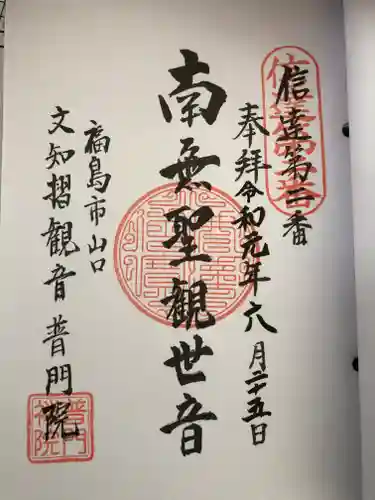 信達第二番
奉拝令和元年六月二十五日
南無聖観世音
福島市山口
文知摺観音普門院